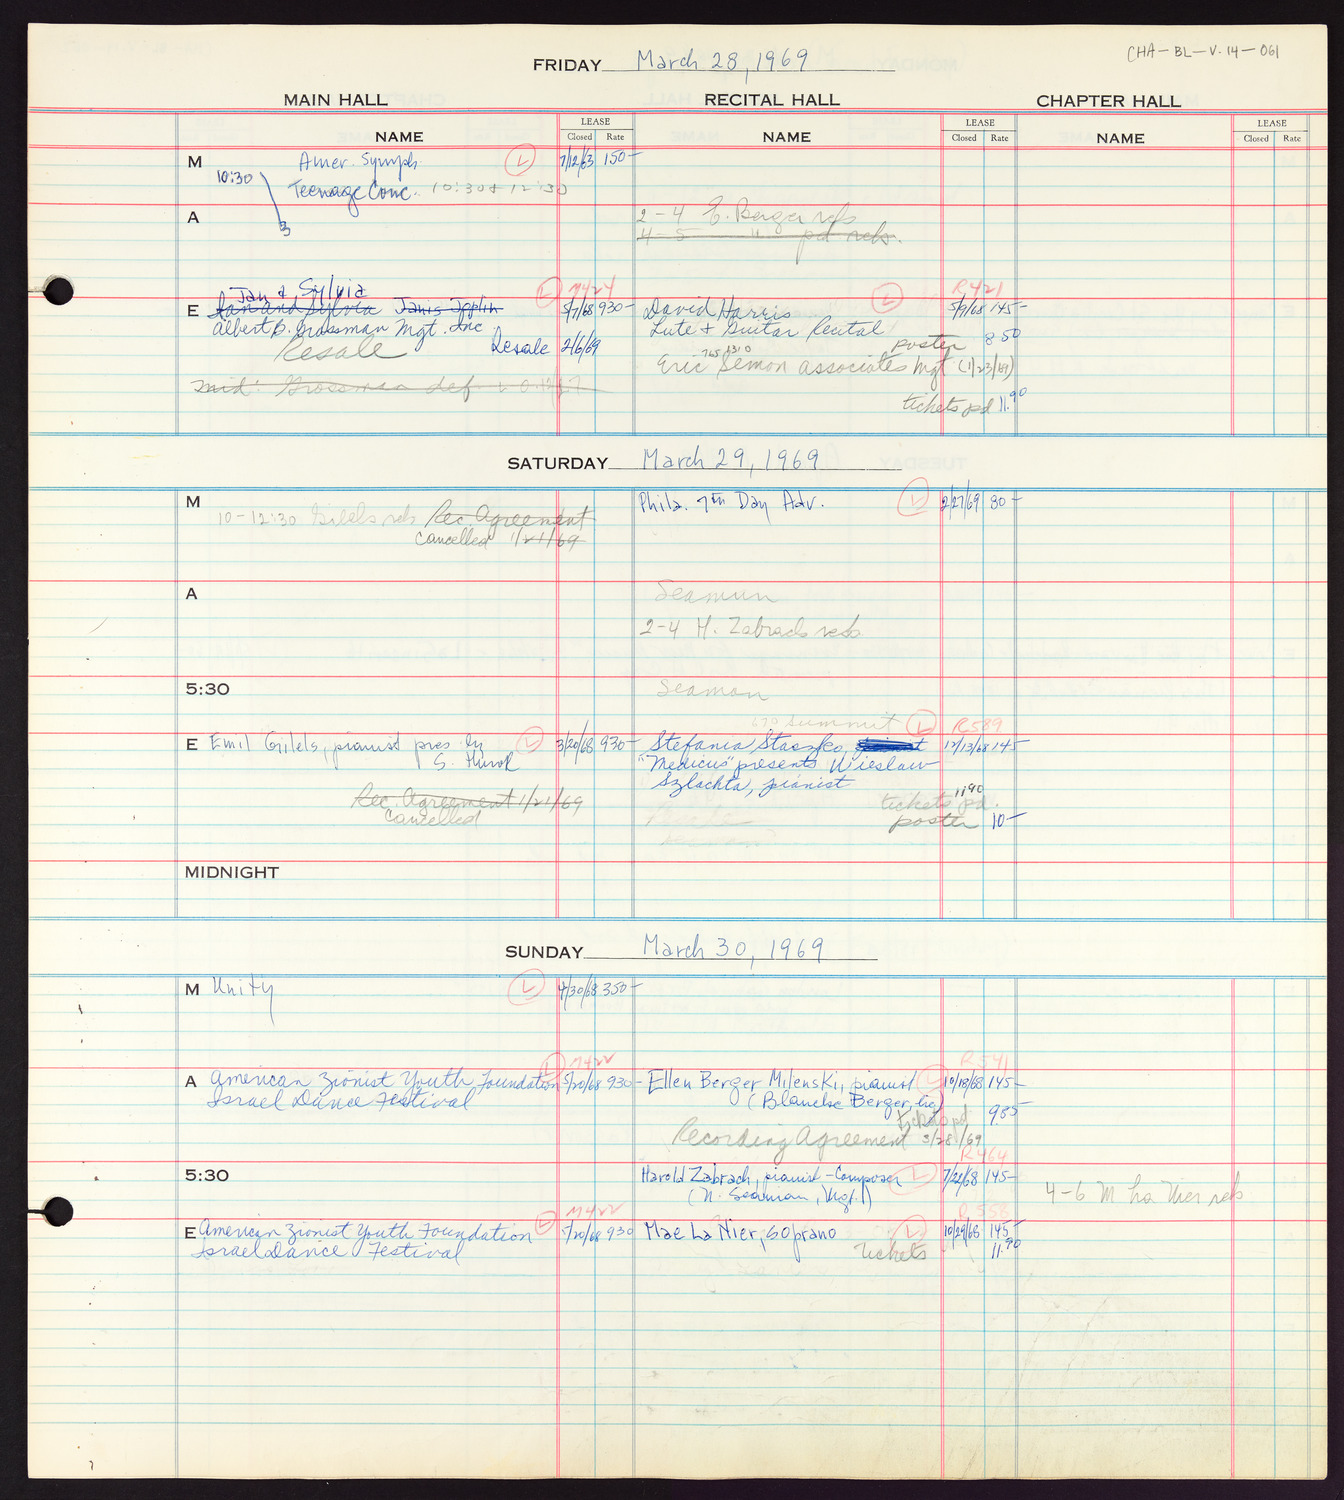 CHA-BL-V.14-061
FRIDAY March 28, 1969
MAIN HALL RECITAL HALL CHAPTER HALL
NAME LEASE Closed Rate NAME LEASE Closed Rate NAME LEASE Closed Rate
M Amer. Symph. L 7/12/63 150-
10:30 Teenage Conc. 10:30 & 12:30
A 3 2-4 E. Berger rehs
4-5 " pd rehs.
Jan & Sylvia L M424 L R421
E Ian and Sylvia Janis Joplin 5/7/68 930- David Harris 5/9/68 145-
Albert B. Grossman Mgt. Inc Lute & Guitar Recital
Resale Resale 2/6/69 poster 8.50
765 1310
Eric Semon associates Mgt (1/23/69)
mid: Grossman def.
tickets pd 11.90
SATURDAY March 29, 1969
M Phila. 7th Day Adv. L 2/27/69 80-
10-12:30 Gilels reh Rec. Agreement
Cancelled 1/21/69
A Seamun
2-4 H. Zabrach rehs
5:30 Seaman
Summit L R589
E Emil Gilels, pianist pres. by L 3/20/68 930- Stefania Staszko, 12/13/68 145-
S. Hurok "Medicus" presents Wieslaw
Szlachta, pianist
Rec. Agreement 1/21/69 tickets pd. 11.90
Cancelled poster 10-
MIDNIGHT
SUNDAY March 30, 1969
M Unity L 4/30/68 350-
L M422 R541
A American Zionist Youth Foundation 5/20/68 930- Ellen Berger Milenski, pianist L 10/18/68 145-
Israel Dance Festival (Blanche Berger, lie)
tickets pd 9.85
Recording Agreement 3/28/69
R464
5:30 Harold Zabrach, pianist-Composer L 7/22/68 145-
(N. Seaman, Mgt.) 4-6 M La Nier reh
M422 R558
E American Zionist Youth Foundation L 5/20/68 930 Mae La Nier, soprano L 10/29/68 145-
Israel Dance Festival Tickets 11.90